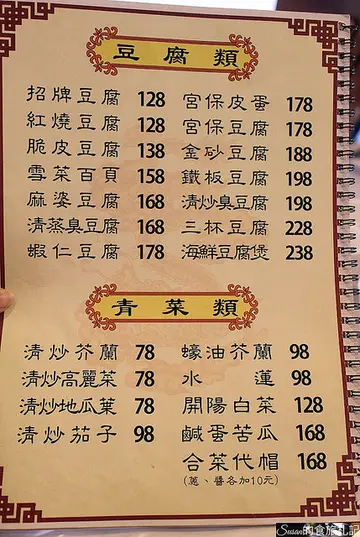 豆腐類
招牌豆腐 128
紅燒豆腐 128
脆皮豆腐 138
雪菜百頁 158
麻婆豆腐 168
清蒸臭豆腐 168
蝦仁豆腐 178
宮保皮蛋 178
宮保豆腐 178
金砂豆腐 188
鐵板豆腐 198
清炒臭豆腐 198
三杯豆腐 228
海鮮豆腐煲 238
青菜類
清炒芥蘭 78
清炒高麗菜 78
清炒地瓜葉 78
清炒茄子 98
蠔油芥蘭 98
水蓮 98
開陽白菜 128
鹹蛋苦瓜 168
合菜代帽 168
(蔥、醬各加10元)
Susan的食旅札記